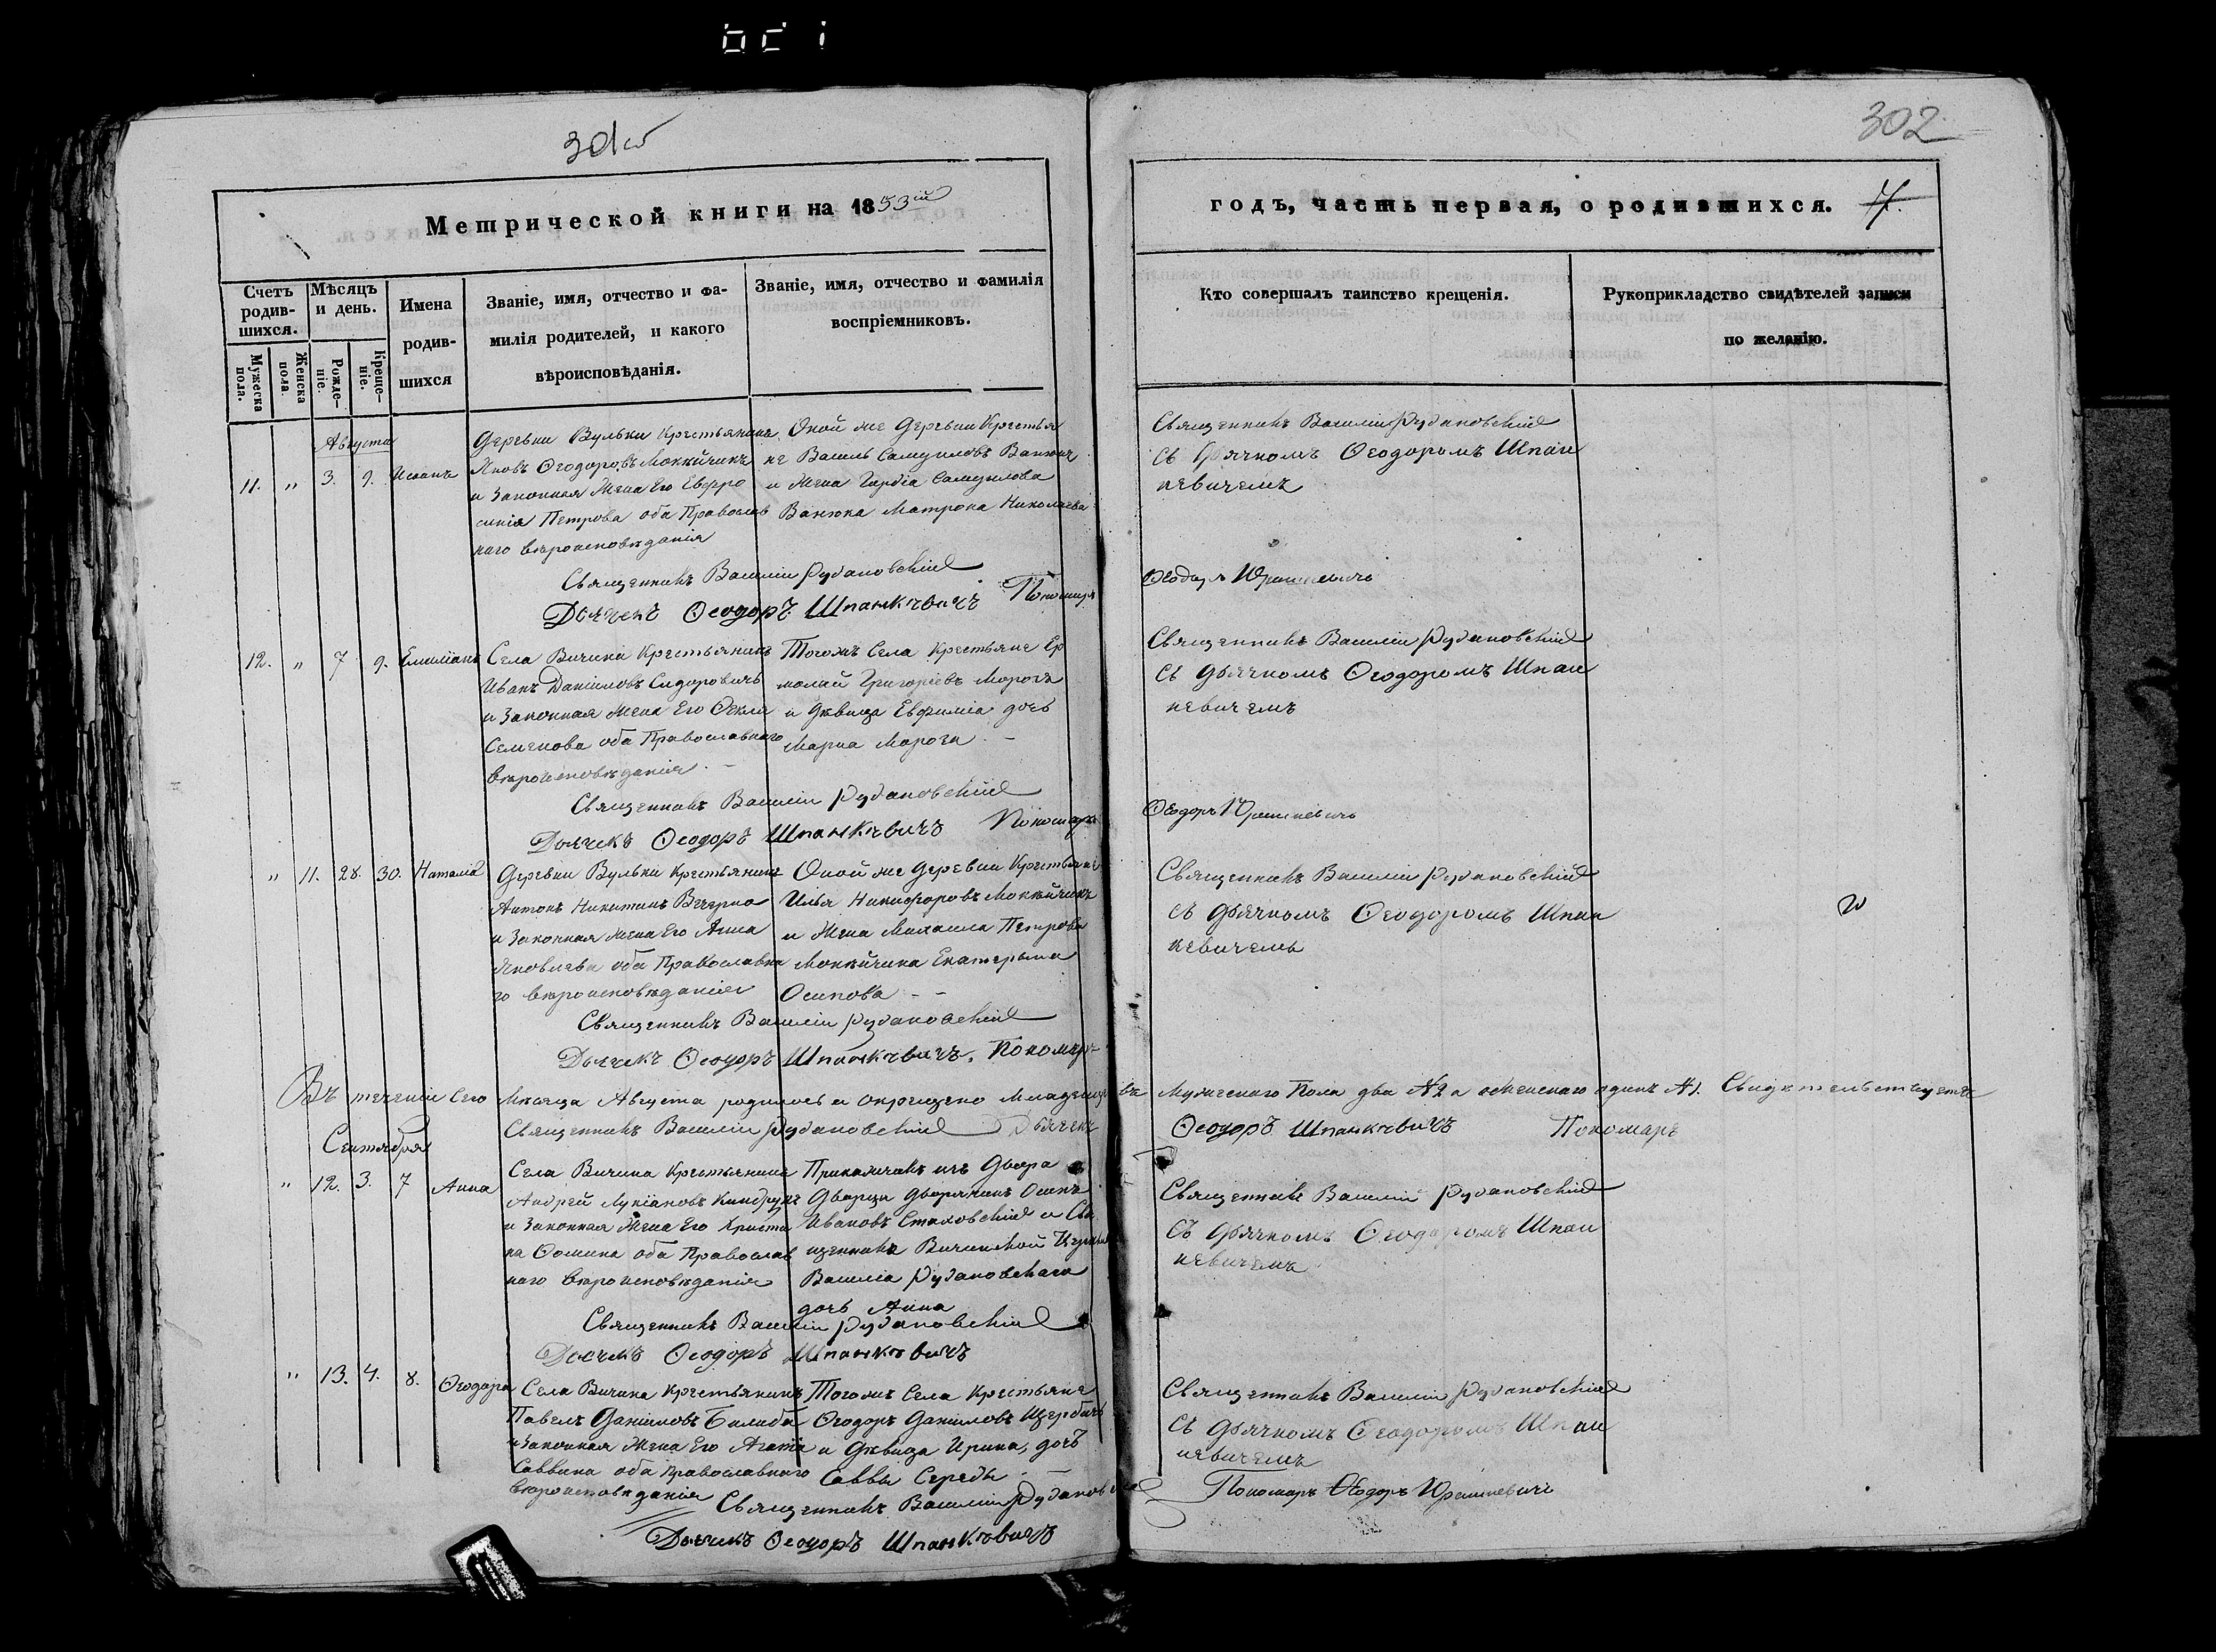 302
Метрической книги на 1853ій
годъ, часть первая, о родившихся.
Счетъ родив-шихся.
Мѣсяцъ и день.
Имена родив-шихся
Званіе, имя, отчество и фа-
милія родителей, и какого
вѣроисповѣданія.
Званіе, имя, отчество и фамилія
воспріемниковъ.
Кто совершалъ таинство крещенія.
Рукоприкладство свидѣтелей записи
по желанію.
Мужеска пола.
Женска пола.
Рожде-ніе.
Креще-ніе.
Августа
11. " 3. 9.
Деревни Вульки Крестьянинъ
Яковъ Ѳеодоровъ Мокѣйчикъ
и Законная Жена Его Евфро
синія Петрова оба Православ
наго вѣроисповѣданія
Оной же Деревни Крестья
не Василь Самуиловъ Ванюкъ
и Жена Самуилова
Ванюка Матрона Николаева
Священникъ Василій Рудановскій
съ Дьячкомъ Ѳеодоромъ Шпан
кевичемъ
Священникъ Василій Рудановскій
Дьячекъ Ѳеодоръ Шпанкѣвичъ Пономаръ
Ѳеодоръ
12. " 7 9. Емиліанъ
Села Вичина Крестьянинъ
Иванъ Даніиловъ Сидоровичъ
и Законная Жена Его Ѳекла
Семенова оба Православнаго
вѣроисповѣданія. –
Тогожъ Села Крестьяне Ер
молай Григоріевъ Морозъ
и Дѣвица Евфимія дочь
Марка Мороза –
Священникъ Василій Рудановскій
съ Дьячкомъ Ѳеодоромъ Шпан
кевичемъ
Священникъ Василій Рудановскій
Дьячекъ Ѳеодоръ Шпанкѣвичъ Пономаръ
Ѳеодоръ
" 11. 28. 30. Наталія
Деревни Вульки Крестьянинъ
Антонъ Никитинъ Вечерко
и Законная жена Его Анна
Яковлева оба Православна
го вѣроисповѣданія
Оной же Деревни Крестьяне
Илья Никифоровъ Мокѣйчикъ
и Жена Михаила Петрова
Мокѣйчика Екатерына
Осипова – –
Священникъ Василій Рудановскій
съ Дьячкомъ Ѳеодоромъ Шпан
кевичемъ
Священникъ Василій Рудановскій
Дьячекъ Ѳеодоръ Шпанкѣвичъ. Пономаръ
Въ теченіи Сего Мѣсяца Августа родилось и окрещено Младенцевъ Мужескаго Пола два №2 а Женскаго одинъ №1. Свидѣтельствуетъ
Священникъ Василій Рудановскій Дьячекъ Ѳеодоръ Шпанкѣвичъ Пономаръ
Сентября
" 12. 3. 7 Анна
Села Вичина Крестьянинъ
Андрей Лукіановъ
и Законная Жена Его Христи
на Ѳомина оба Православ
наго вѣроисповѣданія
Прикащикъ изъ Двора
Дворца Дворянинъ Осипъ
Ивановъ Стаховскій и Свя
щенника Вичинской Церкви
Василія Рудановскаго
дочь Анна
Священникъ Василій Рудановскій
съ Дьячкомъ Ѳеодоромъ Шпан
кевичемъ
Священникъ Василій Рудановскій
Дьячекъ Ѳеодоръ Шпанкѣвичъ
" 13. 4. 8. Ѳеодора
Села Вичина Крестьянинъ
Павелъ Даніиловъ
и Законная Жена Его Агатія
Саввина оба Православнаго
вѣроисповѣданія
Тогожъ Села Крестьяне
Ѳеодоръ Даніиловъ Щербачъ
и Дѣвица Ирина, дочь
Саввы Середы –
Священникъ Василій Рудановскій
съ Дьячкомъ Ѳеодоромъ Шпан
кевичемъ
Священникъ Василій Рудановскій
Пономаръ Ѳеодоръ
Дьячекъ Ѳеодоръ Шпанкѣвичъ